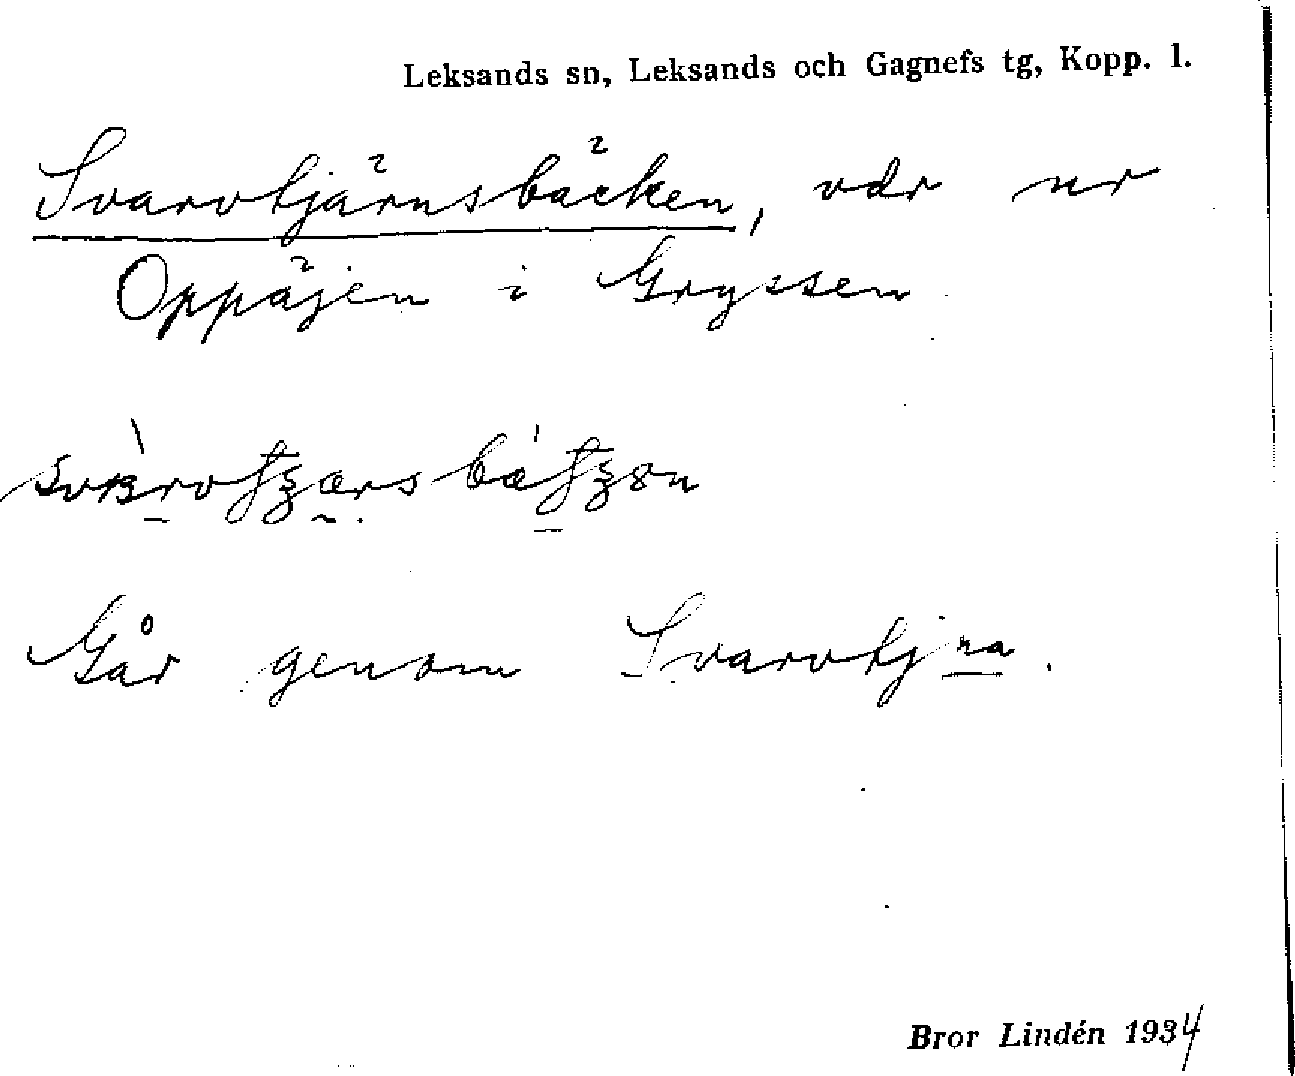 Leksands sn, Leksands och Gagnefs tg, Kopp. l.
Svarvtjärnsbäcken, vdr ur
Oppäjen i Gryssen
Går genom Svarvtjna.
Bror Lindén 1934